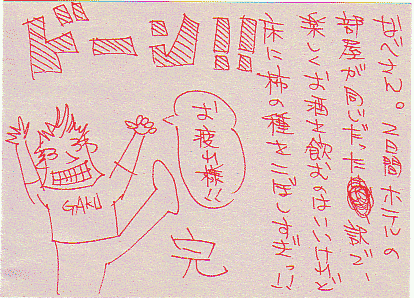 ドーン!!
おじさん。2日間ホテルの
部屋が向いだった訳で、
楽しくお酒を飲むのはいいけど
床に柿の種をこぼしすぎっ!!
お疲れ様!!
GAKU
完